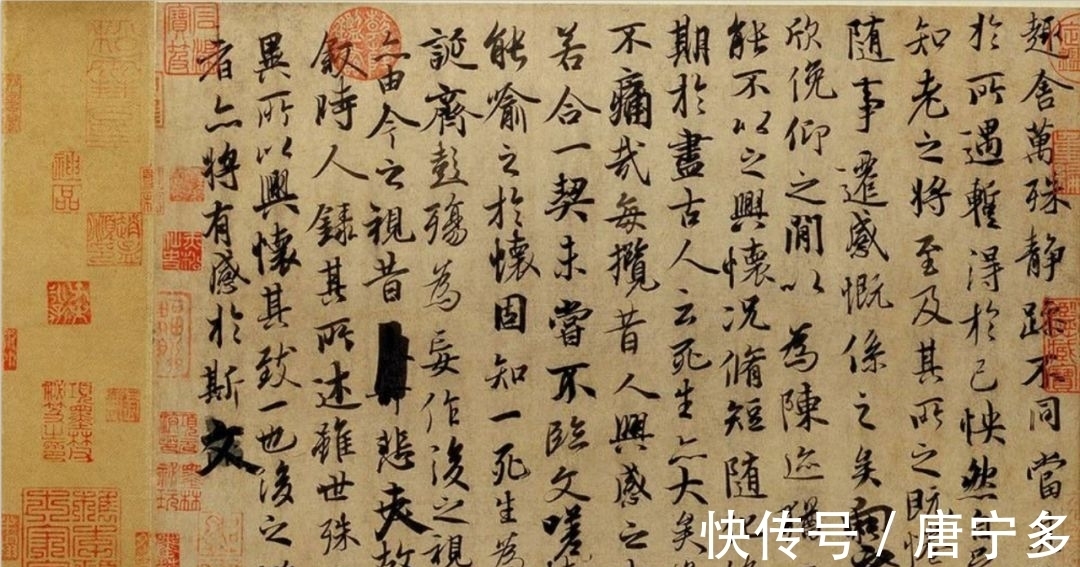 趣舍萬殊静躁不同當
於所遇蹔得於己怏然
知老之將至及其所之既惓
隨事遷感慨係之矣向
欣俛仰之閒以為陳迹猶
能不以之興懷況脩短隨
期於盡古人云死生亦大矣
不痛哉每攬昔人興感之
若合一契未嘗不臨文嗟
能喻之於懷固知一死生為
誕齊彭殤為妄作後之視
亦由今之視昔悲夫故
敘時人錄其所述雖世殊
異所以興懷其致一也後之
者亦將有感於斯文
神品
快传号 / 唐宁多